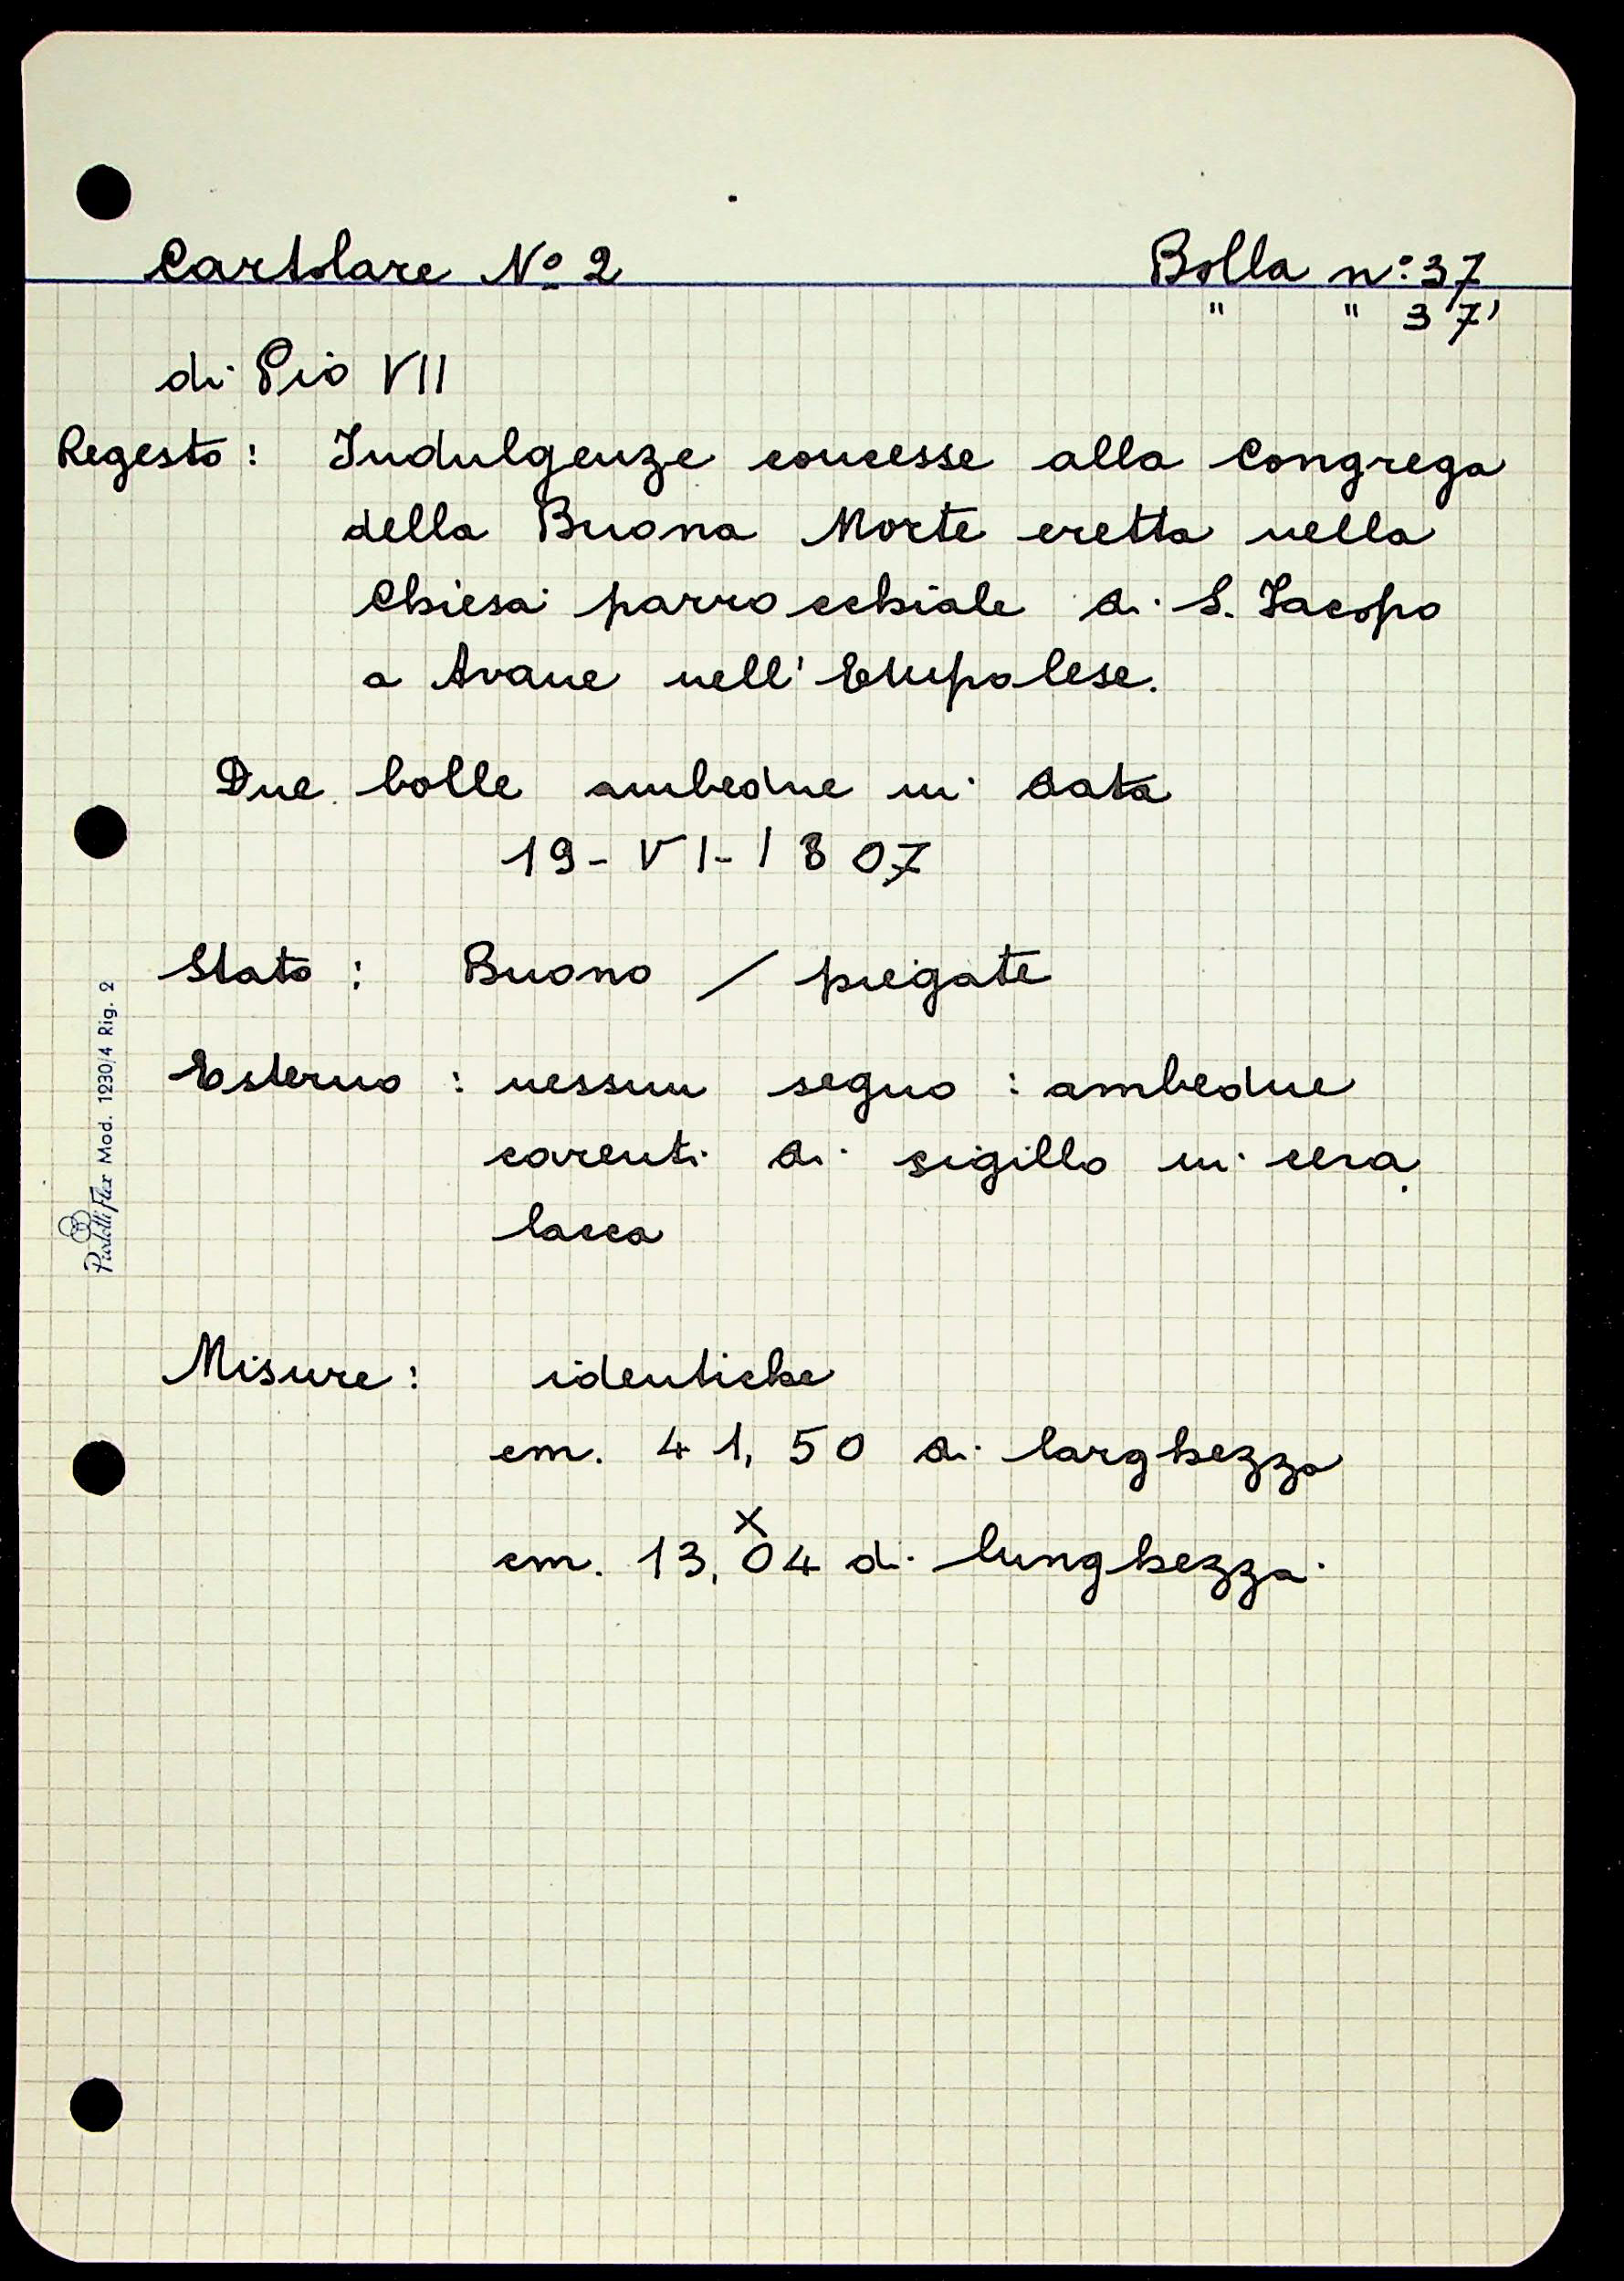 Cartolare Nº 2 Bolla nº: 37
" " 37'
di Pio VII
Regesto: Indulgenze concesse alla Congrega
della Buona Morte eretta nella
Chiesa parrocchiale di S. Jacopo
a Avane nell'Empolese.
Due bolle ambedue in data
19-VI-1807
Stato: Buono / piegate
Esterno: nessun segno: ambedue
carenti di sigillo in cera
lacca
Misure: identiche
cm. 41,50 di larghezza
x
cm. 13,04 di lunghezza.
Mod. 1230/4 Rig. 2